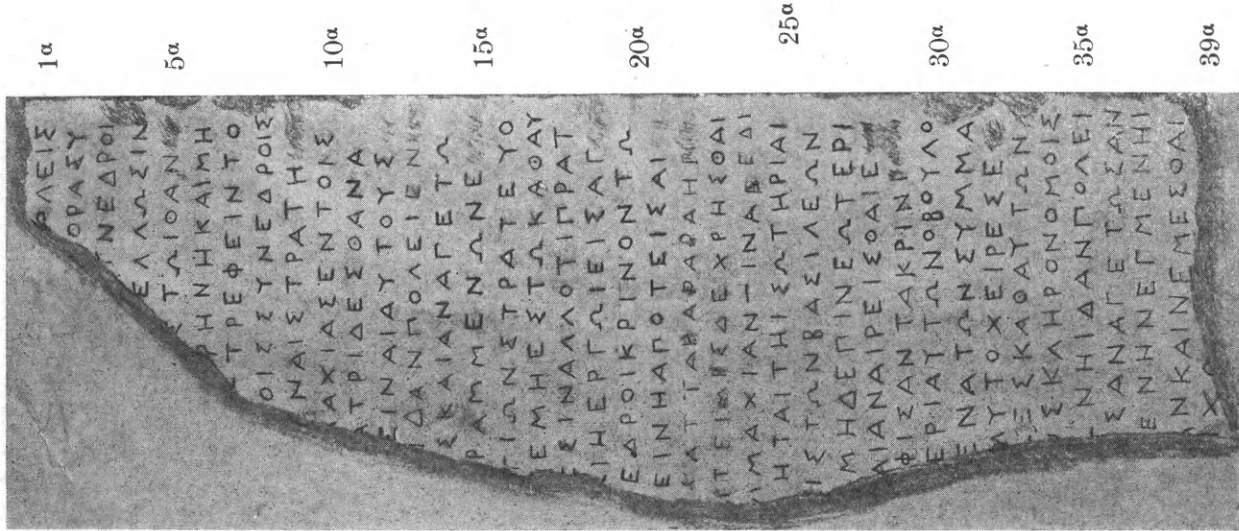 1α
5α
10α
15α
20α
25α
30α
35α
39α
ΟΛΕΙΣ
ΟΡΑΣΥ
ΝΕΔΡΟΙ
ΕΛΛΩΣΙΝ
ΤΩΙΘΑΝ
ΡΗΝΗΚΑΙΜΗ
ΤΡΕΦΕΙΝΤΟ
ΟΙΣΣΥΝΕΔΡΟΙΣ
ΝΑΙΣΤΡΑΤΗ
ΑΧΙΑΣΕΝΤΟΙΣ
ΑΤΡΙΔΕΣΘΑΝΑ
ΕΙΝΑΙΑΥΤΟΥΣ
ΔΑΝΠΟΛΕΙΕΝ
ΣΚΑΙΑΝΑΓΕΤΩ
ΡΑΜΜΕΝΩΝΕ
ΙΩΝΣΤΡΑΤΕΥΟ
ΕΜΗΕΣΤΩΚΑΘΑΥ
ΕΣΙΝΑΛΛΟΤΙΠΡΑΤ
ΙΗΕΡΓΩΙΕΙΣΑΓ
ΕΔΡΟΙΚΡΙΝΟΝΤΩ
ΕΙΝΗΑΠΟΤΕΙΣΑΙ
ΕΣΔΕΧΡΗΣΘΑΙ
ΜΑΧΙΑΝΤΙΝΑΒΕΔΙ
ΗΤΑΙΤΗΙΣΩΤΗΡΙΑΙ
ΙΣΤΩΝΒΑΣΙΛΕΩΝ
ΜΗΔΕΓΙΝΕΩΤΕΡΙ
ΑΙΑΝΑΙΡΕΙΣΘΑΙΕ
ΦΙΣΑΝΤΑΚΡΙΝ
ΕΡΙΑΥΤΩΝΟΒΟΥΛΟ
ΕΝΑΤΩΝΣΥΜΜΑ
ΑΥΤΟΧΕΙΡΕΣΕ
ΕΣΚΑΘΑΥΤΩΝ
ΣΚΛΗΡΟΝΟΜΟΙΣ
ΝΗΙΔΑΝΠΟΛΕΙ
ΣΑΝΑΓΕΤΩΣΑΝ
ΕΝΗΝΕΓΜΕΝΗΙ
ΝΚΑΙΝΕΜΕΣΘΑΙ